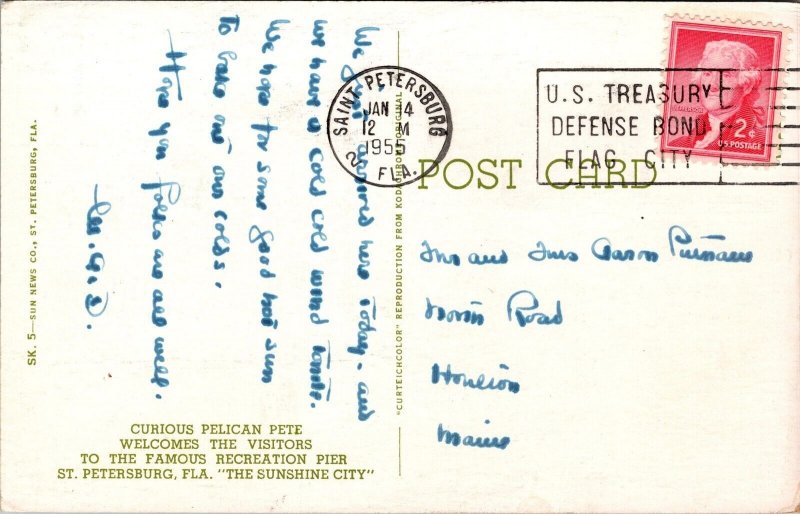 We just arrived here today - and
we have a cold cold wind tonite.
We hope for some good hot sun
to bake out our colds.
Hope you folks are all well.
SK. 5—SUN NEWS CO., ST. PETERSBURG, FLA.
CURIOUS PELICAN PETE
WELCOMES THE VISITORS
TO THE FAMOUS RECREATION PIER
ST. PETERSBURG, FLA. "THE SUNSHINE CITY"
"CURTEICHCOLOR" REPRODUCTION FROM KODACHROME ORIGINAL
SAINT PETERSBURG
JAN 14
12 M
1955
2 FLA.
U.S. TREASURY
DEFENSE BOND
FLAG CITY
JEFFERSON
2¢
US POSTAGE
POST CARD
Mr and Mrs Aaron Putnam
North Road
Houlton
Maine